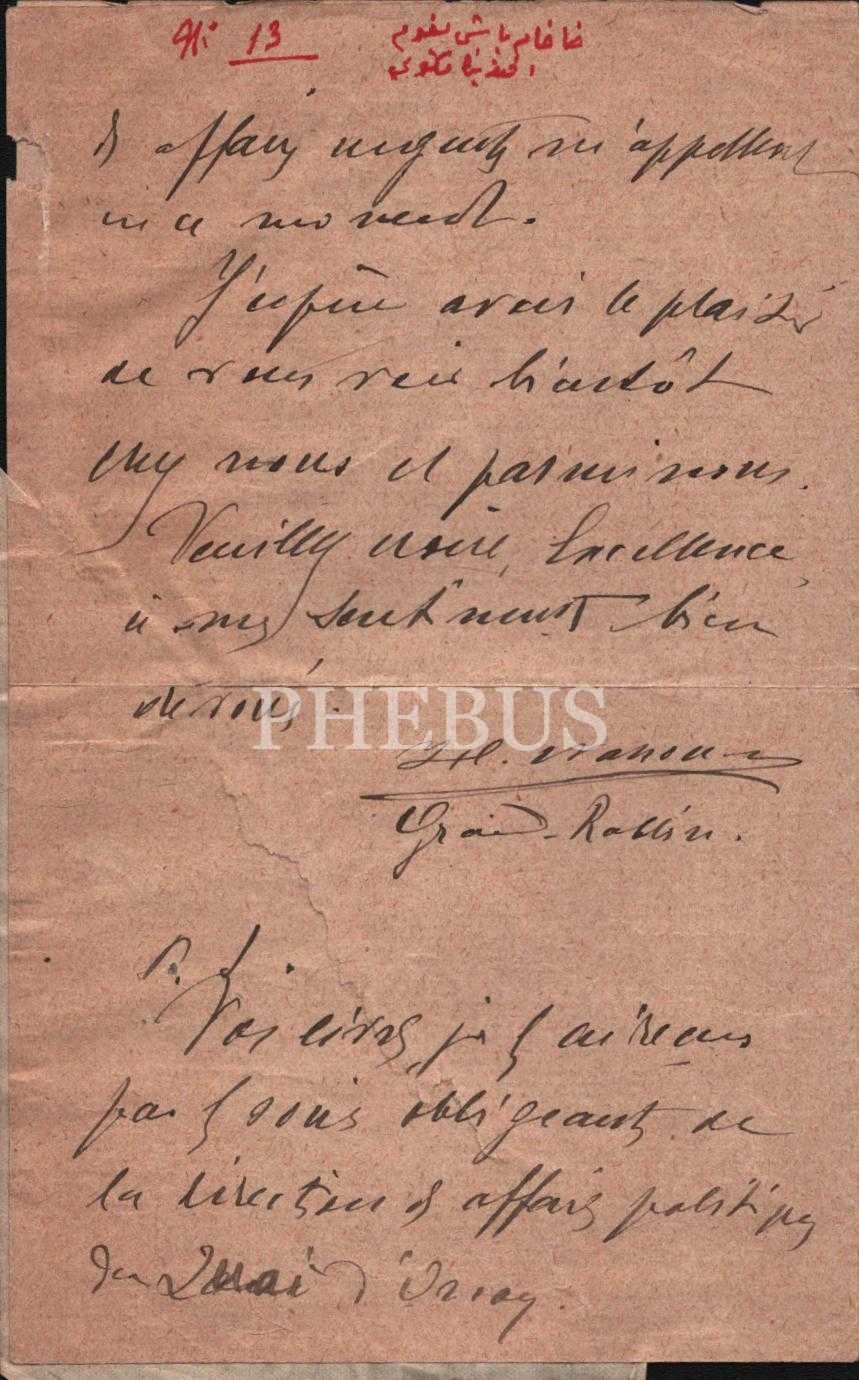 13
خاخام باشى نعوم
افندينك مكتوبى
des affaires urgentes m'appellent
en ce moment.
J'espère avoir le plaisir
de vous voir bientôt
chez nous et parmi nous.
Veuillez croire, Excellence,
à mes sentiments bien
dévoués.
PHEBUS
H. Nahoum
Grand-Rabbin.
P. S.
Vos livres, je les ai reçus
par les soins obligeants de
la direction des affaires politiques
du Quai d'Orsay.